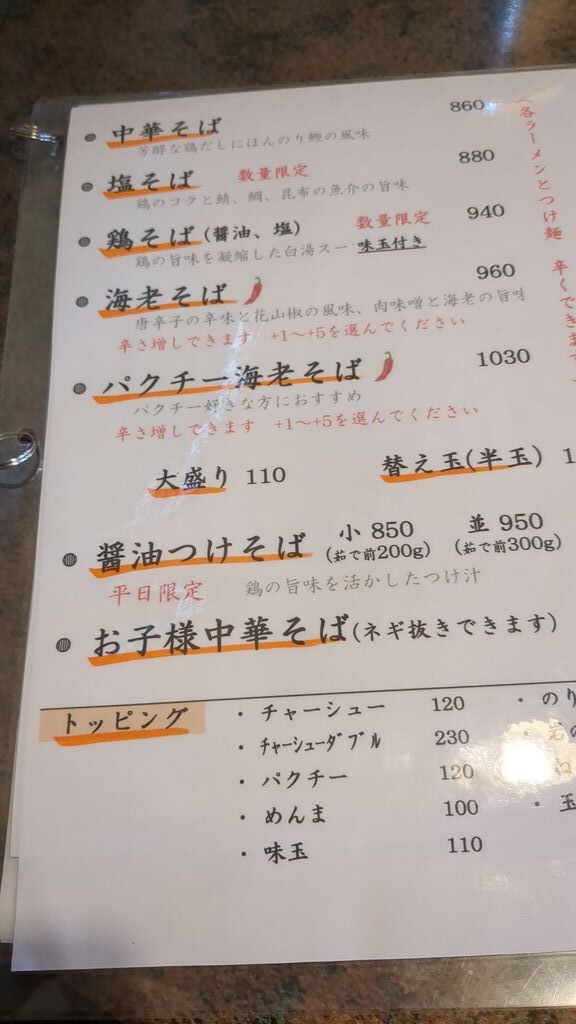 中華そば 860
芳醇な鶏だしにほんのり鰹の風味
塩そば 数量限定 880
鶏のコクと鯖、鯛、昆布の魚介の旨味
鶏そば(醤油、塩) 数量限定 940
鶏の旨味を凝縮した白湯スー 味玉付き
海老そば 960
唐辛子の辛味と花山椒の風味、肉味噌と海老の旨味
辛さ増しできます +1〜+5を選んでください
パクチー海老そば 1030
パクチー好きな方におすすめ
辛さ増しできます +1〜+5を選んでください
大盛り 110 替え玉(半玉)
醤油つけそば 小 850 並 950
(茹で前200g) (茹で前300g)
平日限定 鶏の旨味を活かしたつけ汁
お子様中華そば(ネギ抜きできます)
トッピング
・チャーシュー 120 ・のり
・チャーシューダブル 230
・パクチー 120
・めんま 100 ・玉
・味玉 110
(各ラーメンとつけ麺 辛くできます